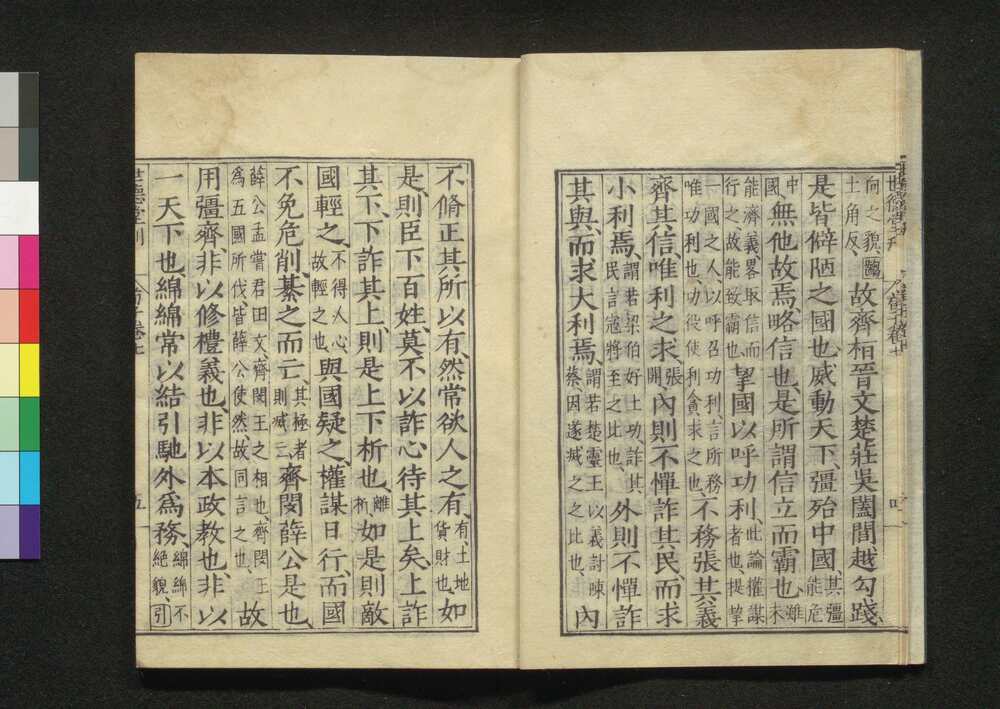 向之貌齺
土角反故齊桓晉文楚莊吳闔閭越勾踐
是皆僻陋之國也威動天下彊殆中國其彊能危
中國無他故焉略信也是所謂信立而霸也雖未
能濟義畧取信而
行之故能致霸也挈國以呼功利此論權謀者也提挈
一國之人以呼召功利言所務
唯功利也功役使利貪求之也不務張其義
齊其信唯利之求張開內則不憚詐其民而求
小利焉謂若梁伯好土功詐其民言寇將至之比也外則不憚詐
其與而求大利焉謂若楚靈王以義討陳蔡因遂滅之之比也內
不脩正其所以有然常欲人之有有土地貨財也如
是則臣下百姓莫不以詐心待其上矣上詐
其下下詐其上則是上下析也離析如是則敵
國輕之不得人心故輕之也與國疑之權謀日行而國
不免危削綦之而亡其極者則滅亡齊閔薛公是也
薛公孟嘗君田文齊閔王之相也齊閔王
為五國所伐皆薛公使然故同言之也故
用彊齊非以修禮義也非以本政教也非以
一天下也綿綿常以結引馳外爲務綿綿不絕貌引
世德堂刊
荀子卷七
五